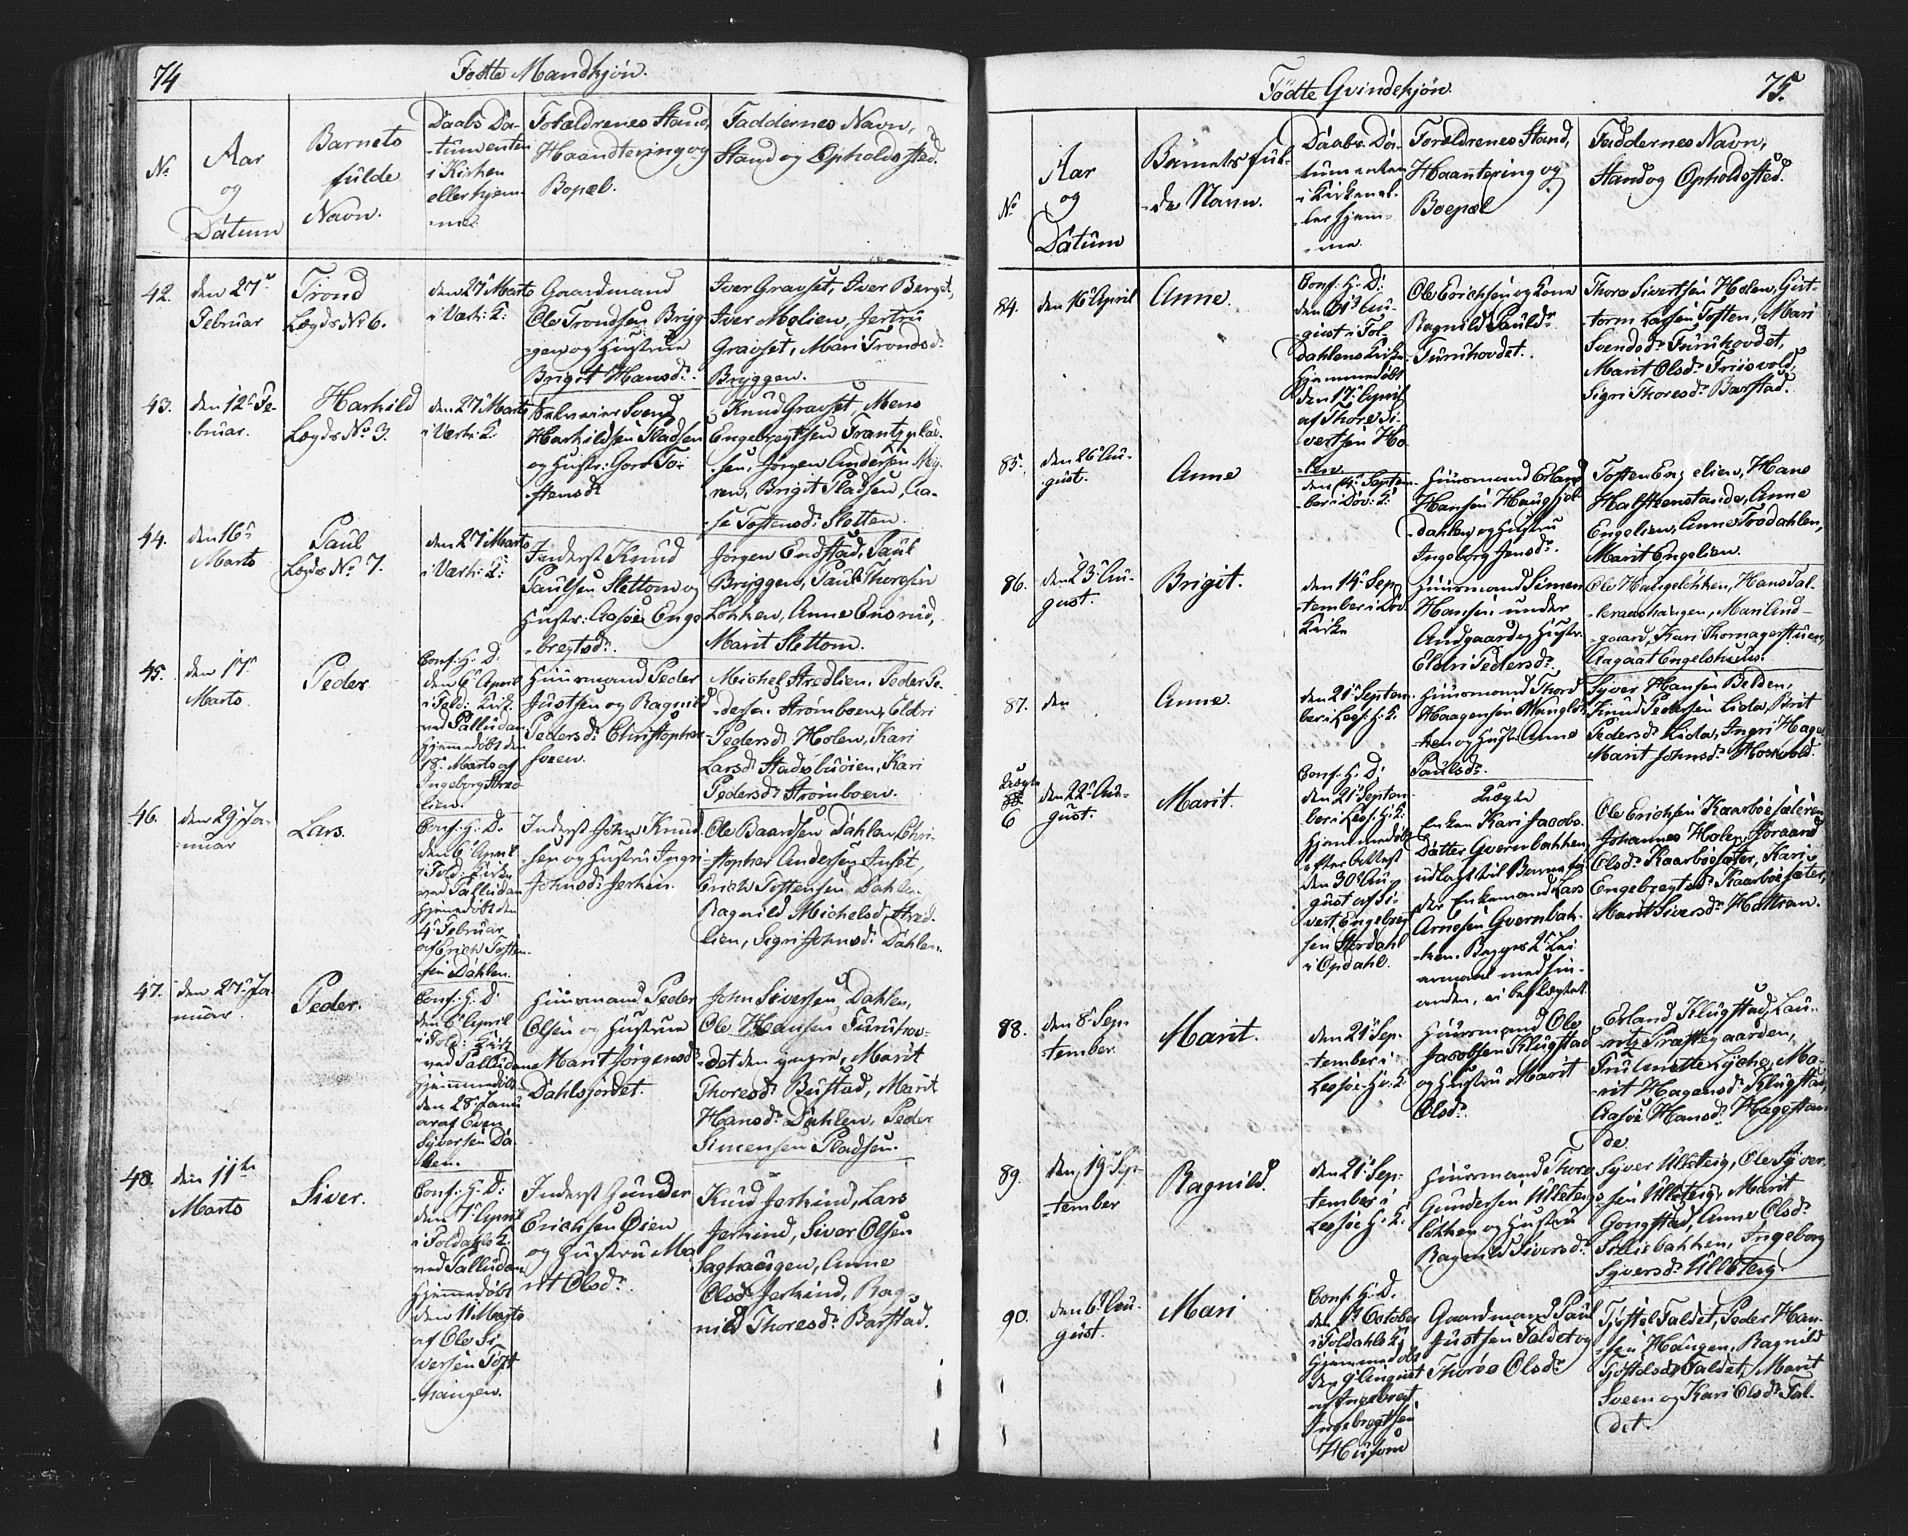 74
Fødte Mandkjøn.
No
Aar
og
Datum
Barnets
fulde
Navn.
Daabs Da-
-tum enten
i Kirken
eller hjem-
-me.
Forældrenes Stand,
Haandtering og
Bopæl.
Faddernes Navn,
Stand og Opholdssted.
42.
den 27de
Februar
Trond
Lægds No 6.
den 27 Marts
i Værk: K:
Gaardmand
Ole Trondsen Bryg-
-gen og Hustrue
Brigit Hansd:
Iver Gravset, Iver Berget,
Iver Molien, Jertru
Gravset, Mari Tronds-
Bryggen.
43.
den 12te Fe-
-bruar.
Harkild
Lægds No 3.
den 27 Marts
i Værk: K:
Svend
Harkildsen Pladsen
og Hustr: Goro To-
-stensd:
Knud Gravset, Mens
Engebregtsen Frantzplad-
-sen, Jørgen Andersen My-
-ren, Brigit Pladsen, Aa-
-se Tostensd: Sletten.
44.
den 16de
Marts
Paul
Lægds No 7.
den 27 Marts
i Værk: K:
Inderst Knud
Paulsen Slettom og
Hustr: Aasøe Enge-
-bregtsd:
Jørgen Endstad, Paul
Bryggen, Paul Thoresen
Løkken, Anne Ensrud,
Marit Slettom.
45.
den 17de
Marts
Peder
Conf: H: D:
den 6te April
i Fold: Kirk.
ved Palludan
hjemmedøbt den
18de Marts af
Ingeborg Stred-
lien.
Huusmand Peder
Justsen og Ragnild
Pedersd: Christopher-
hoen.
Michel Stredlien, Peder Pe-
-dersen Strømboen, Eldri
Pedersd: Holen, Kari
Larsd: Stadsbuøien, Kari
Pedersd: Strømboen.
46.
den 29de Ja-
-nuar
Lars.
Conf: H. D.
den 6te April
i Fold: Kirke
ved Palludan
hjemmedøbt den
4 Februar
af Erich Tosten-
-sen Dahlen.
Inderst John Knud-
-sen og Hustru Ingri
Johnsd: Jerkin.
Ole Baardsen Dahlen, Chri-
-stopher Andersen Inset,
Erich Tostensen Dahlen
Ragnild Michelsd: Stred-
lien, Sigri Johnsd: Dahlen.
47.
den 27de Ja-
nuar.
Peder.
Conf: H: D:
den 6te April
i Fold: Kirk
ved Palludan
hjemmedøbt
den 28 Janu-
ar af Even
Syversen Da-
len.
Huusmand Peder
Olsen og Hustrue
Marit Jørgensd:
Dahlsjordet.
John Siversen Dahlen,
Ole Hansen Furuhov-
-det den yngre, Marit
Thoresd: Bustad, Marit
Hansd: Dahlen, Peder
Simensen Pladsen.
48.
den 11te
Marts
Siver.
Conf: H: D:
den 7de April
i Foldahls K.
ved Palludan
hjemmedøbt
den 11 Marts
af Ole Si-
versen Toft-
haugen.
Inderst Gunder
Erichsen Øien
og Hustru Ma-
rit Olsd:
Knud Jerkind, Lars
Jerkind, Siver Olsen
Saghaugen, Anne
Olsd: Jerkind, Rag-
nild Thoresd: Barstad.
75.
Fødte Qvindekjøn.
No
Aar
og
Datum
Barnets ful-
-de Navn.
Daabs Da-
tum enten
i Kirken el-
ler hjem-
-me
Forældrenes Stand,
Haantering og
Boepæl
Faddernes Navn,
Stand og Opholdsted.
84.
den 16de April
Anne.
Conf: H: D:
den 31te Au-
-gust i Fol-
dahlens Kirke.
hjemmedøbt
den 17de April
af Thore Si-
vertsen Ho-
len
Ole Erichsen og Kone
Ragnild Paulsd:
Furuhovdet.
Thore Sivertsen Holen, Gut-
-torm Larsen Toften, Mari
Svendsd: Furuhovdet,
Marit Olsd: Friisvold,
Sigri Thoresd: Barstad.
85.
den 26de Au-
gust.
Anne
den 14de Septem-
ber i Dov: K:
Huusmand Erland
Hansen Haugsjor-
dahlen og Hustru
Ingeborg Jensd:
Tosten Engelien, Hans
Halsteenstande, Anne
Engelien, Anne Trodahlen,
Marit Engelien.
86.
den 23de Au-
gust.
Brigit.
den 14de Sep-
tember i Dov.
Kirke
Huusmand Simen
Hansen under
Andgaard og Hustr:
Eldri Pedersd:
Ole Haugeløkken, Hans Tal-
leraashaugen, Mari And-
-gaard, Kari Thomasgerstuen,
Aagaat Engelshuus.
87.
den
Anne.
den 21de Septem-
ber i Lesj: H: K:
Huusmand Thord
Haagensen
-ken og Hustr: Anne
Paulsd:
Syver Hansen Belden,
Knud Pedersen Lida, Brit
Pedersd: Lida, Ingri Hage,
Marit Johnsd: Moswold.
Uægte
6
den 22de Au-
gust.
Marit.
Conf: H: D:
den 21de Septem-
ber i Lesj: H: K:
hjemmedøbt
efter Attest
den 30te Au-
gust af Si-
vert Engebregt-
sen Stordahl
i Opdahl.
Uægte
Enken Kari Jacobs-
Datter Qvernbakken
udlagt til Barnefa-
der Enkemand Lars
Arnesen Qvernbak-
ken. Begges 2de Lei-
ermaal med hin-
anden, ei beslægtet.
Ole Erichsen Kaarbøesæteren,
Johannes Holen, Joraand
Olsd: Kaarbøesæter, Kari
Engebregtsd: Kaarbøesæter,
Marit Siversd: Hattran.
88.
den 8de Sep-
tember
Marit.
den 21de Sep-
-tember i
Lesjøe H: K:
Huusmand Ole
Jacobsen Klugstad
og Hustru Marit
Olsd:
Erland Klugstad, Lau-
-ritz Præstegaarden,
Fru Mette Lyche, Ma-
rit Hagensd: Klugstad,
Aasøe Hansd: Hagestan-
de
89.
den 19de Sep-
-tember
Ragnild.
den 21de Sep-
-tember i
Lesjøe H: K:
Huusmand Thore
Gundersen Ulleteigs-
løkken og Hustru
Ragnild Siversd:
Syver Ulleteig, Ole Syver-
-sen Ulleteig, Marit
Gongstad, Anne Olsd:
Sollisbakken, Ingeborg
Syversd: Ulleteig.
90.
den 6te Au-
gust.
Mari
Conf: H: D.
den 1ste October
i Foldahls K:
hjemmedøbt
den 9de August
af Ingebregt
Ingebregtsen
Husom
Gaardmand Paul
Justsen Faldet og
Thorøe Olsd:
Tjøstel Faldet, Peder Han-
-sen Haugen, Ragnild
Tjøstelsd: Faldet, Marit
Sveen og Kari Olsd: Fal-
det.